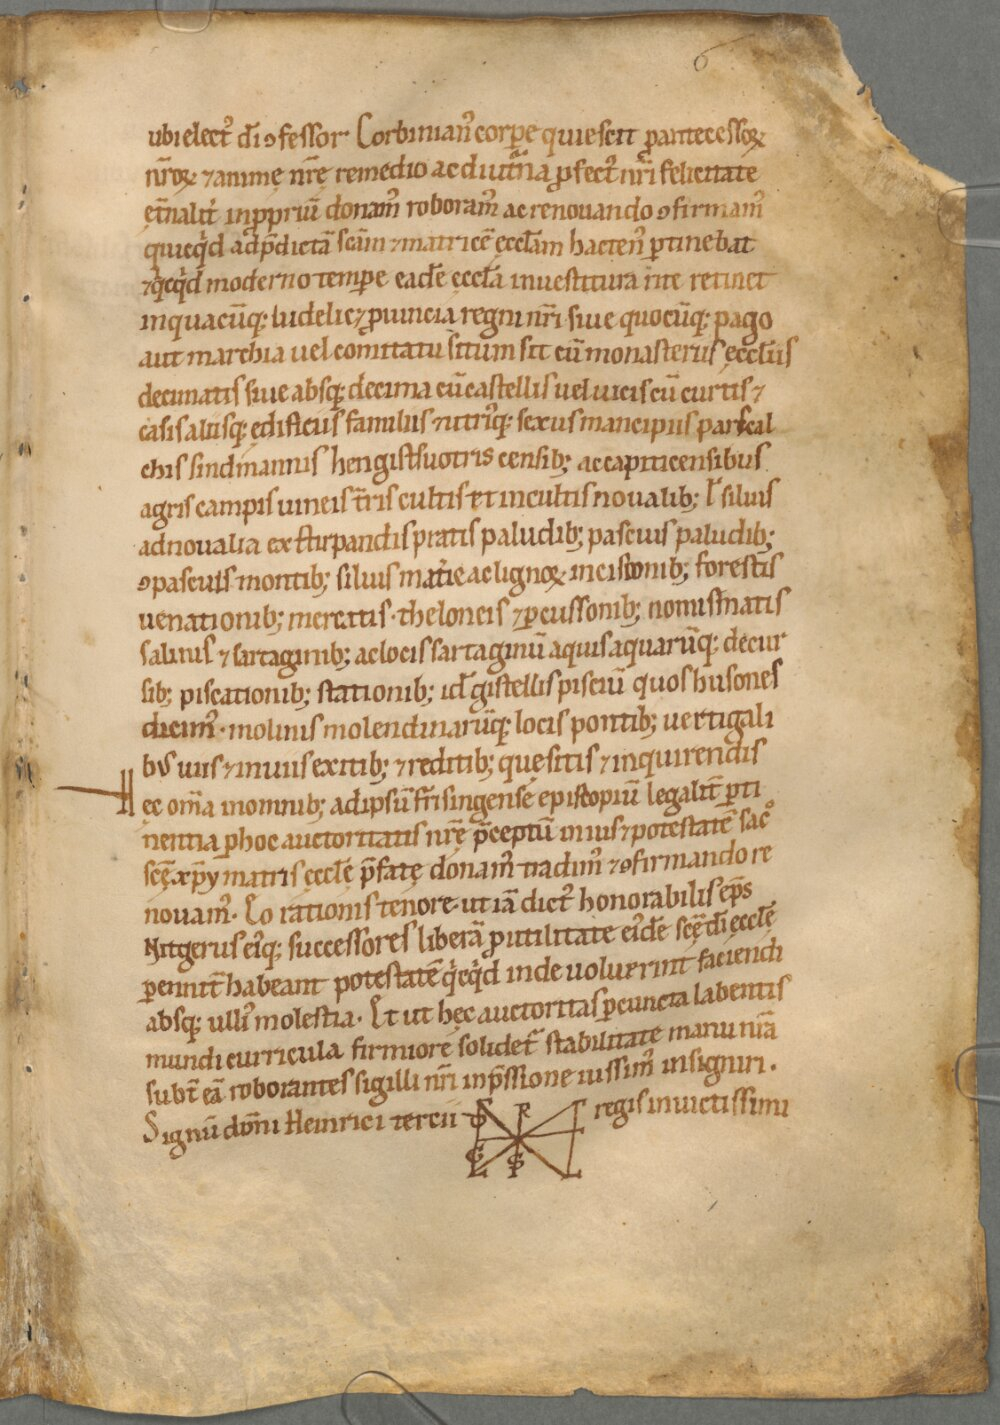 6
ubi elect᷒ dī ꝯfessor· Corbinian᷒ corpe quiescit ꝓ antecessoꝝ
nr̄oꝝ ⁊ animę nr̄ę remedio ac diut̄na ꝓfect᷒ nr̄i felicitate
et̄nalit̄ in ꝓpriū donam᷒ roboram᷒ ac renouando ꝯfirmam᷒
quicq̇d ad p̄dictā scām ⁊ matricē ęccl̄am hacten᷒ ꝑtinebat
⁊ q̇cq̇d moderno tempe eadē ęccl̄a inuestitura rite retinet
in quacūq; Iudelic⁊ ꝓuincia regni nr̄i siue quocūq; pago
aut marchia uel comitatu situm sit cū monasteriis ęccl̄iis
decimatis siue absq; decima cū castellis uel uicis cū curtis ⁊
casis aliisq; ędificiis familiis ⁊ utri᷒q; sexus mancipiis parscal
chis sindmannis hengistsuotris censib; ac capiticensibus
agris campis uineis t̄ris cultis et incultis noualib; ł siluis
ad noualia exstirpandis pratis paludib; pascuis paludib;
ꝯpascuis montib; siluis mat̄ie ac lignoꝝ incisionib; forestis
uenationib; mercatis· theloneis ⁊ ꝑcussionib; nomismatis
salinis ⁊ sartaginib; ac locis sartaginū aquis aquarūq; decur
sib; piscationib; stationib; id ē gistellis pisciū quos husones
dicim᷒· molinis molendinarūq; locis pontib; uertigali
bus uiis ⁊ inuiis exitib; ⁊ reditib; quęsitis ⁊ inquirendis
Hec om̄ia in omnib; ad ipsū fr̄isingensē episcopiū legalit̄ ꝑti
nentia ꝑ hoc auctoritatis nr̄ę p̄ceptū in ius ⁊ potestatē sac᷒
scē xp̄y matris ęccl̄ę p̄fatę donam᷒ tradim᷒ ⁊ ꝯfirmando re
nouam᷒. Eo rationis tenore· ut iā dict᷒ honorabilis ep̄s
Nitgerus ei᷒q; successores liberā ꝓ utilitate ei᷒dē scę̄ dī ęccl̄ę
ꝑennit̄ habeant potestatē q̇cq̇d inde uoluerint faciendi
absq; ulli᷒ molestia. Et ut hęc auctoritas ꝑ cuncta labentis
mundi curricula firmiore solidet᷒ stabilitate manu nr̄a
subt̄ eā roborantes sigilli nr̄i inp̄ssione iussim᷒ insigniri.
Signū dōni Heinrici tercii regis inuictissimi